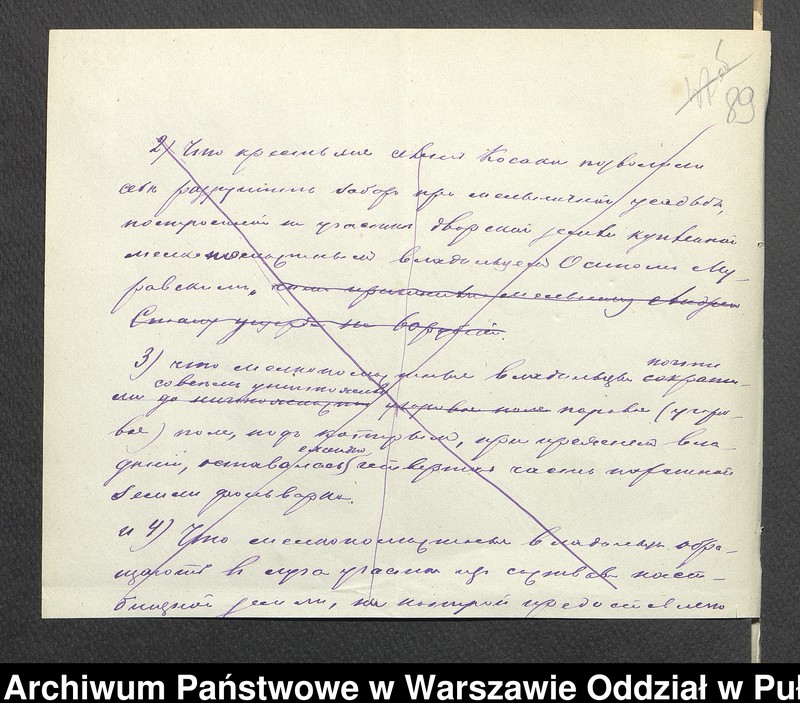 89
2) Что крестьяне Косаки позволили
себѣ разрушить заборъ при мельничной усадьбѣ,
построенной на участкѣ дворской земли купленной
мелкопомѣстнымъ владѣльцемъ Му-
равскимъ,
3) что мелкопомѣстные владѣльцы почти сократи-
ли до совсѣмъ уничтожили паровое (угоро-
вое) поле, подъ которымъ, при прежнемъ вла-
дѣніи, оставалась ежегодно четвертая часть пахатной
земли фольварка.
и 4) Что мелкопомѣстные владѣльцы обра-
щаютъ въ луга участки изъ паст-
бищной земли, на которой предоставлено
Archiwum Państwowe w Warszawie Oddział w Puł